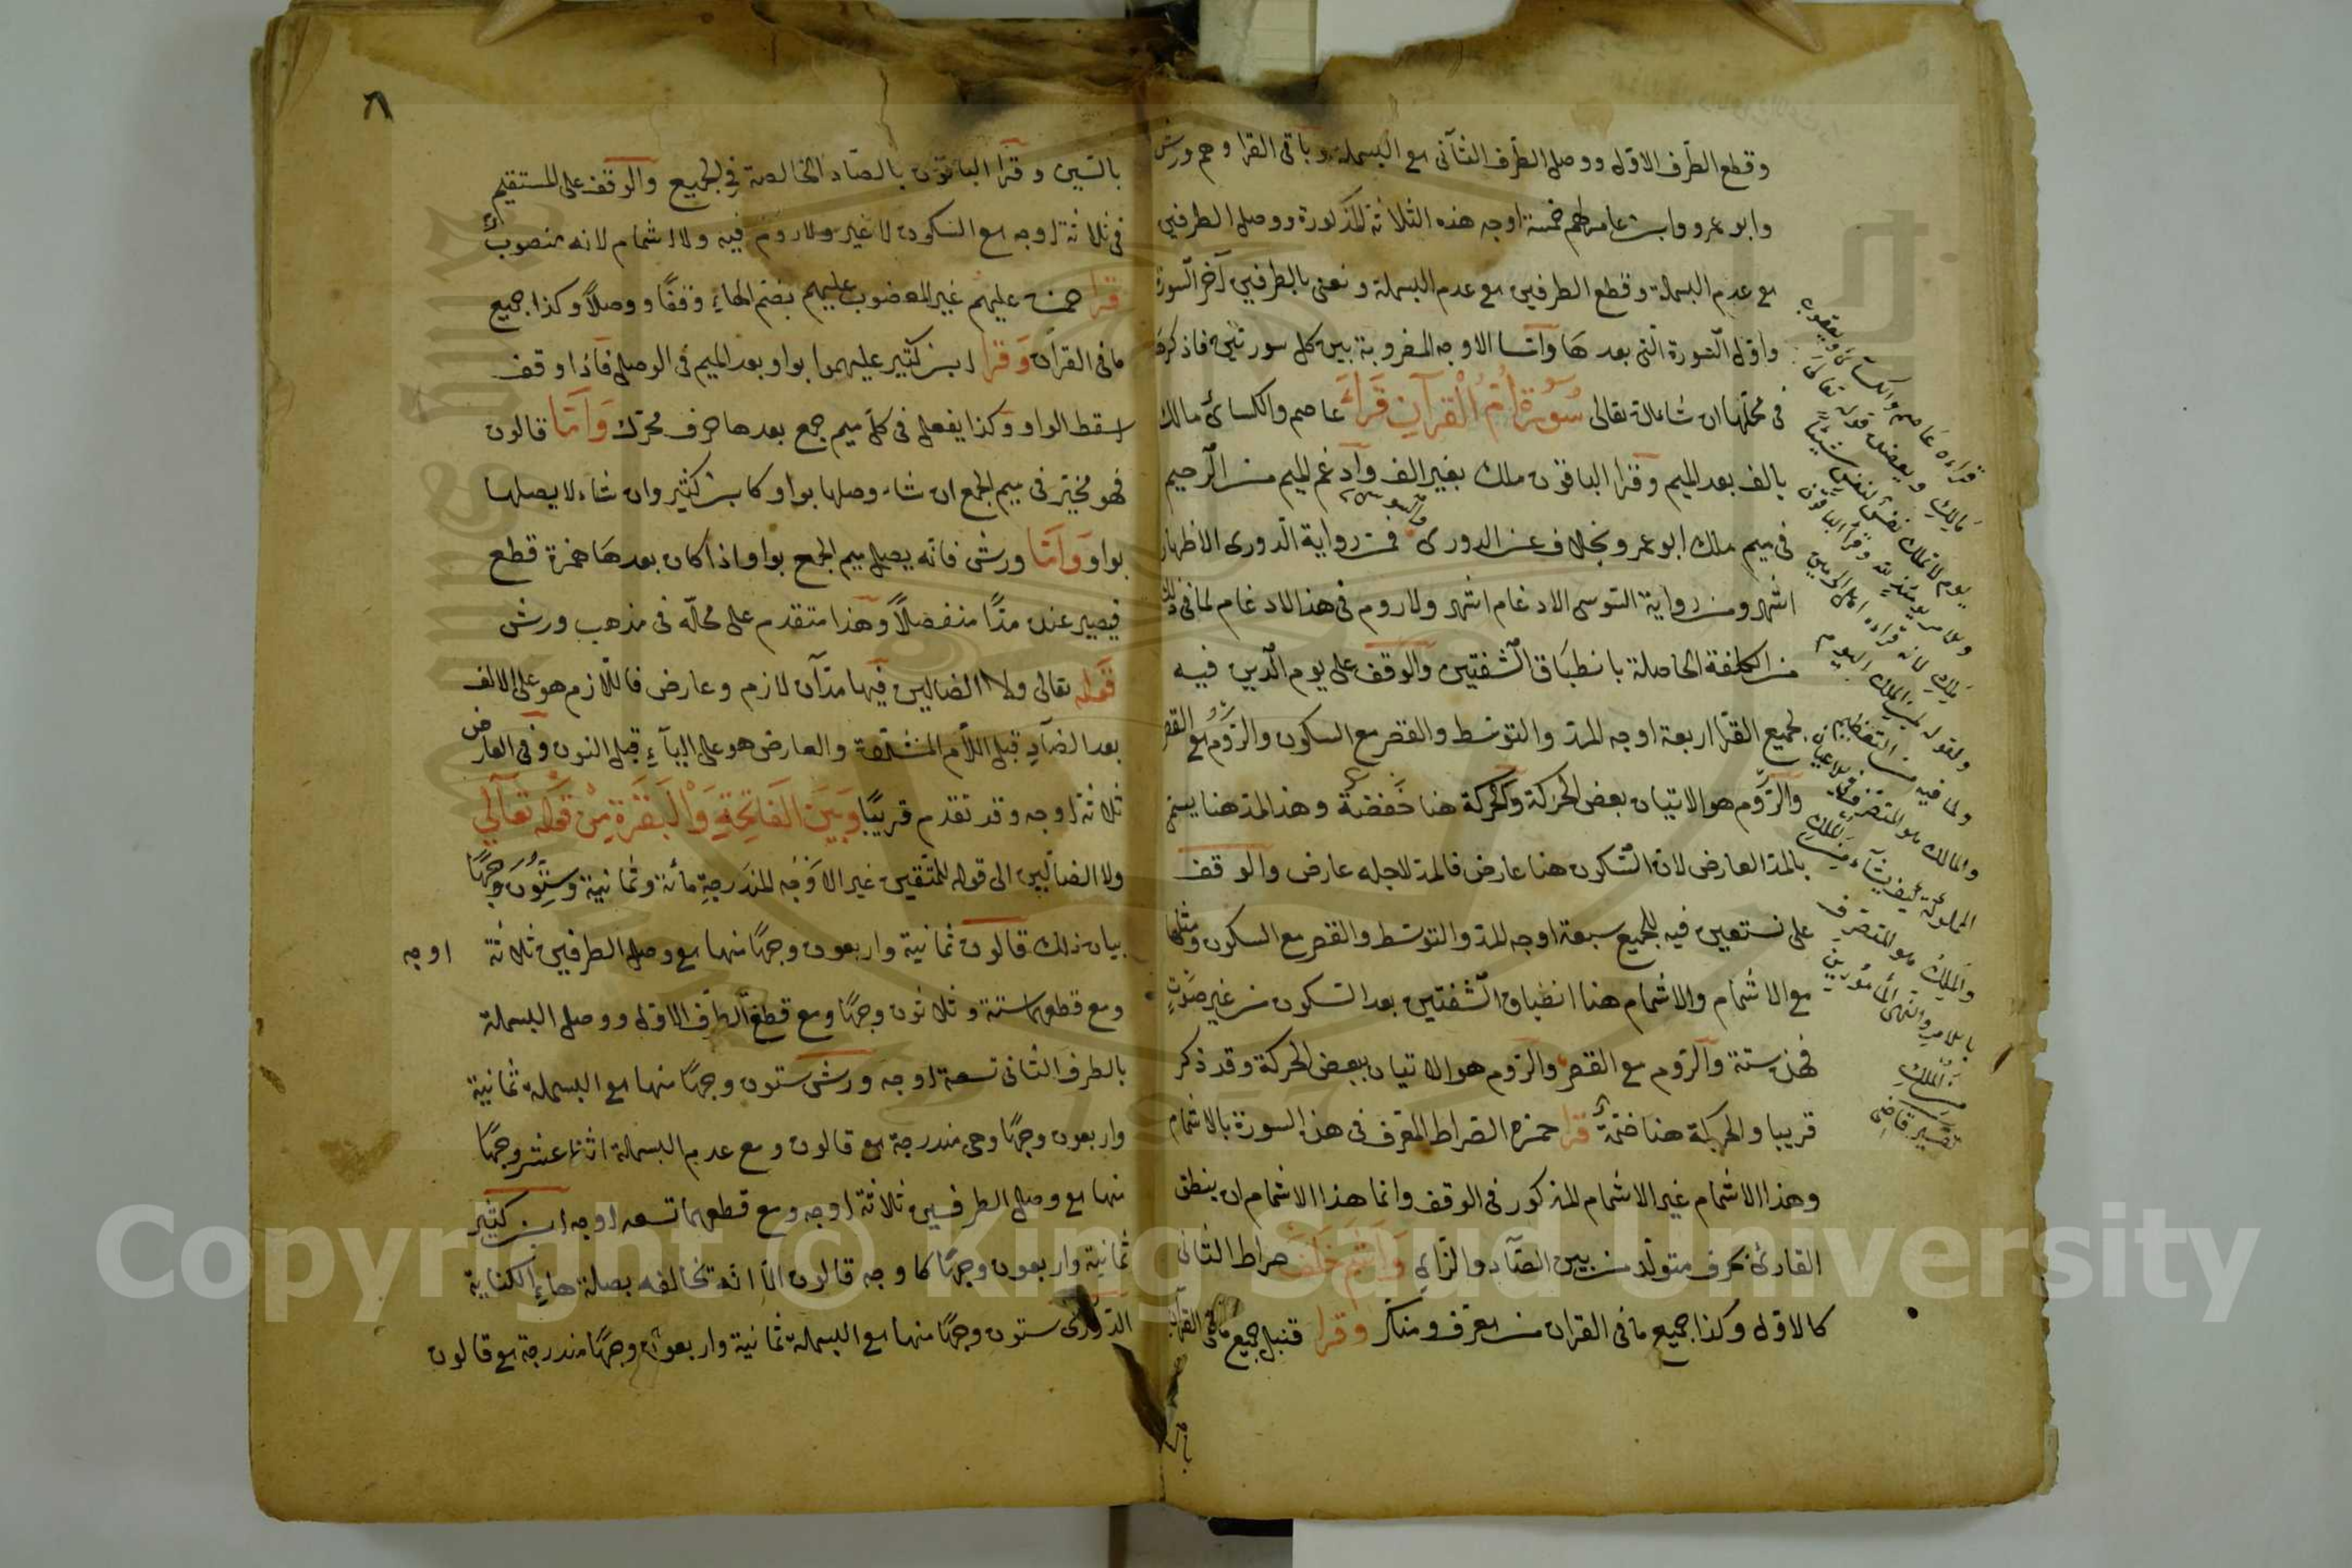 وقطع الطّرف الاوّل ووصل الطّرف الثّانى مع البسملة وباقى القرا وهم ورش
وابو عمرو وابن عامر لهم خمسة اوجه هذه الثلاثة المذكورة ووصل الطرفين
مع عدم البسملة وقطع الطرفين مع عدم البسملة ونعنى بالطرفين آخر السّورة
واوّل السّورة الّتى بعدها وامّا الاوجه المضروبة بين كل سورتين فاذكرها
فى محلّها ان شاء الله تعالى سُورَةُ اُمّ الْقُرْآنِ قَرَاءَ عاصم والكسائى مالك
بالف بعد الميم وقرا الباقون ملك بغير الف وادغم الميم من الرّحيم
فى ميم ملك ابو عمرو بخلاف عن الدورى والسوسى فمن رواية الدّورى الاظهار
اشهر ومن رواية السّوسى الادغام اشهر ولا روم فى هذا الادغام لما فى ذلك
من الكلفة الحاصلة بانطباق الشّفتين والوقف على يوم الدّين فيه
لجميع القرّا اربعة اوجه المدّ والتوسّط والقصر مع السكون والرّوم مع القصر
والرّوم هو الاتيان ببعض الحركة والحركة هنا خَفْضَةٌ وهذا المد هنا يسمّى
بالمدّ العارض لانّ السّكون هنا عارض فالمدّ لاجله عارض والوقف
على نستعين فيه للجميع سبعة اوجه المدّ والتوسّط والقصر مع السكون ومثلها
مع الاشمام والاشمام هنا انطباق الشّفتين بعد السّكون من غير صَوْتٍ
فهذه ستة والرّوم مع القصر والرّوم هو الاتيان ببعض الحركة وقد ذكر
قريبا والحركة هنا ضمّة قرا حمزه الصراط المعرف فى هذه السورة بالاشمام
وهذا الاشمام غير الاشمام المذكور فى الوقف وانما هذا الاشمام ان ينطق
القارئ بحرف متولّد من بين الصّاد والزّاى وَاَشَمَّ خَلَفٌ صراط الثانى
كالاوّل وكذا جميع ما فى القران من معرّف ومنكر وقرا قنبل جميع ما فى القرآن
قراءه عاصم والكسائى ويعقوب
مَالِكِ ويعضده قوله تعالى
يوم لا تملك نفس لنفس شيئا
والامر يومئذ لله وقرأ الباقون
مَلِكِ لانه قراءه اهل الحرمين
ولقوله لمن الملك اليوم
ولما فيه من التعظيم
والمالك هو المتصرف فى الاعيان
المملوكة كيف يشاء من الملك
والملك هو المتصرف
بالامر والنهى فى المأمورين
من الملك
تفسير قاضى
بالسّين وقرا الباقون بالصّاد الخالصة فى الجميع والوقف على المستقيم
فى ثلاثة اوجه مع السّكون لا غير ولا روم فيه ولا اشمام لانه منصوبٌ
قرا حمزه عليهم غير المغضوب عليهم بضمّ الهاء وقفًا ووصلاً وكذا جميع
ما فى القرآن وَقَرا ابن كثير عليهموا بواو بعد الميم فى الوصل فاذا وقف
اسقط الواو وكذا يفعل فى كل ميم جمع بعدها حرف محرّك وَاَمّا قالون
فهو مخيّر فى ميم الجمع ان شاء وصلها بواو كابن كثير وان شاء لا يصلها
بواو وَاَمَّا ورش فانّه يصل ميم الجمع بواو اذا كان بعدها همزة قطع
فيصير عنده مدًّا منفصلاً وهذا متقدم على محلّه فى مذهب ورش
قَوله تعالى ولا الضالين فيها مدّان لازم وعارض فاللّازم هو على الالف
بعد الضّادِ قبل اللّام المشدّدة والعارض هو على اليآءِ قبل النون وفى العارض
ثلاثة اوجه وقد تقدم قريبًا وَبَيْنَ الفَاتِحَةِ وَالْبَقَرَةِ مِنْ قَوله تَعَالي
ولا الضّالّين الى قوله للمتّقين غير الاَوْجُه المندَرجةِ مائة وثمانية وسِتُّونَ وجهًا
بيان ذلك قالون ثمانية واربعون وجهًا منها مع وصل الطرفين ثلاثة اوجه
ومع قطعهما ستة وثلاثون وجهًا ومع قطع الطّرف الاوّل ووصل البسملة
بالطرف الثانى تسعة اوجه ورش ستون وجهًا منها مع البسملة ثمانية
واربعون وجهًا وهى مندرجة مع قالون ومع عدم البسملة اثنا عشر وجهًا
منها مع وصل الطرفين ثلاثة اوجه ومع قطعهما تسعه اوجه ابن كثير
ثمانية واربعون وجهًا كاوجه قالون الّا انّه تخالفه بصلة هاءِ الكناية
الدّورى ستون وجهًا منها مع البسملة ثمانية واربعون وجهًا مندرجة مع قالون
Copyright © King Saud University